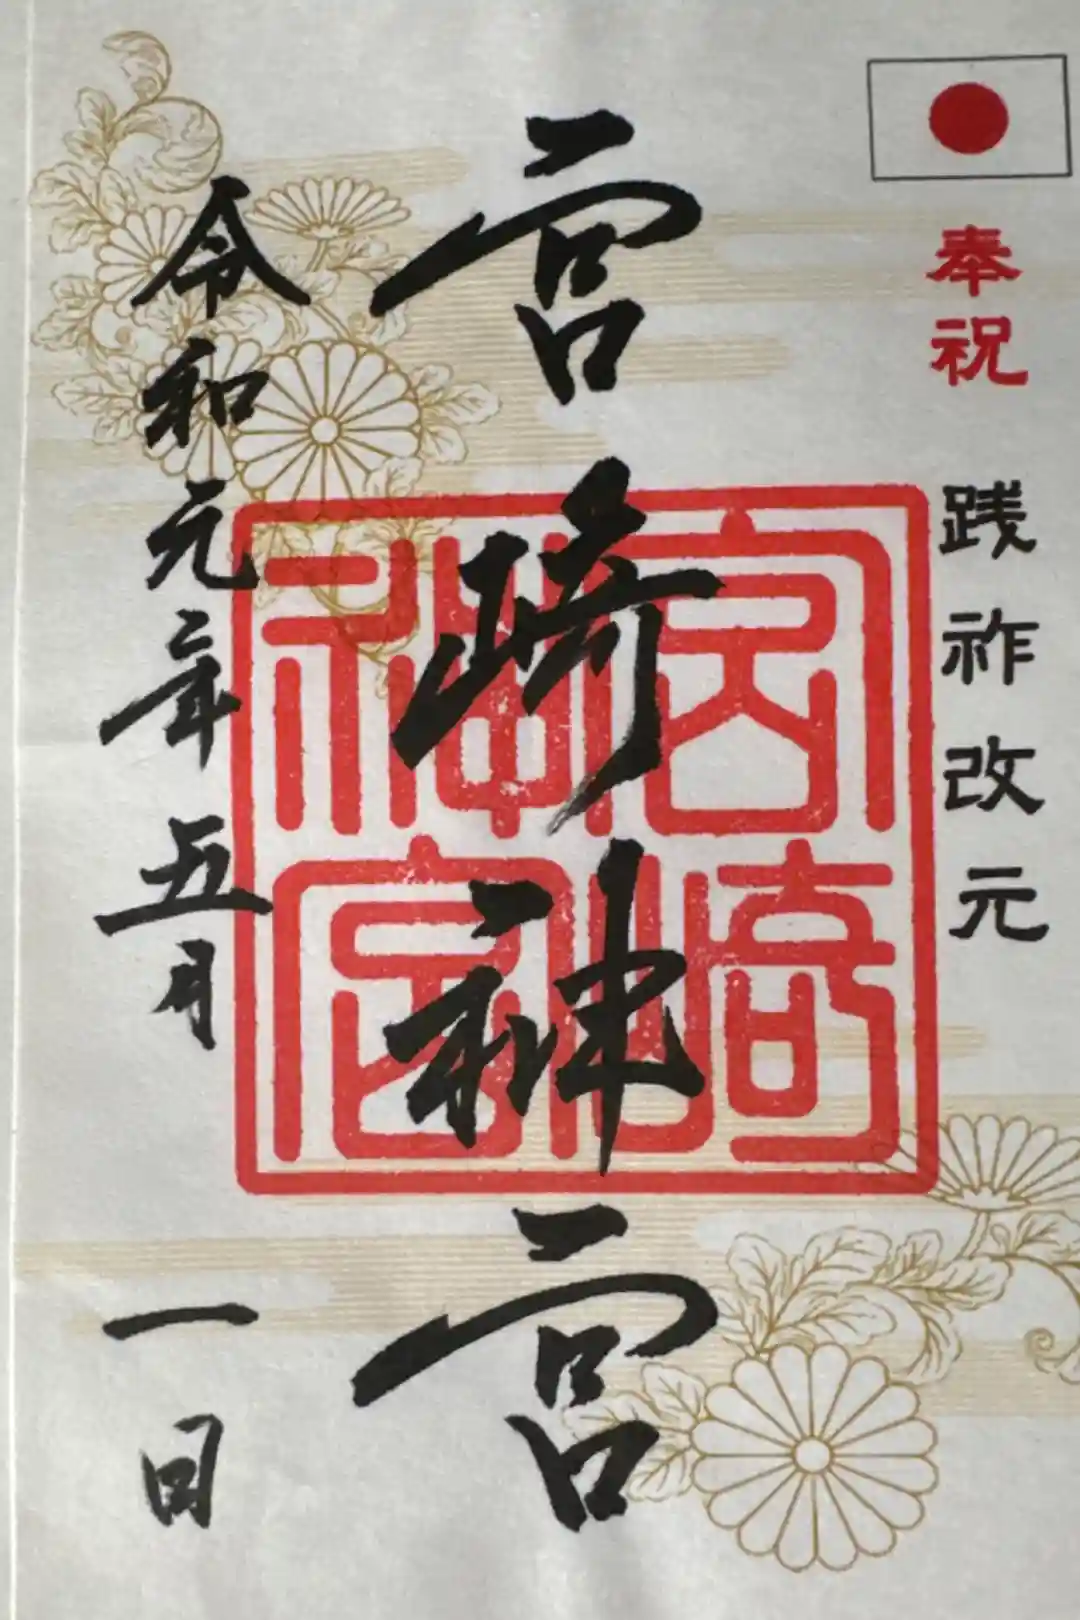 奉祝
践祚改元
宮崎神宮
宮崎神宮
令和元年五月一日